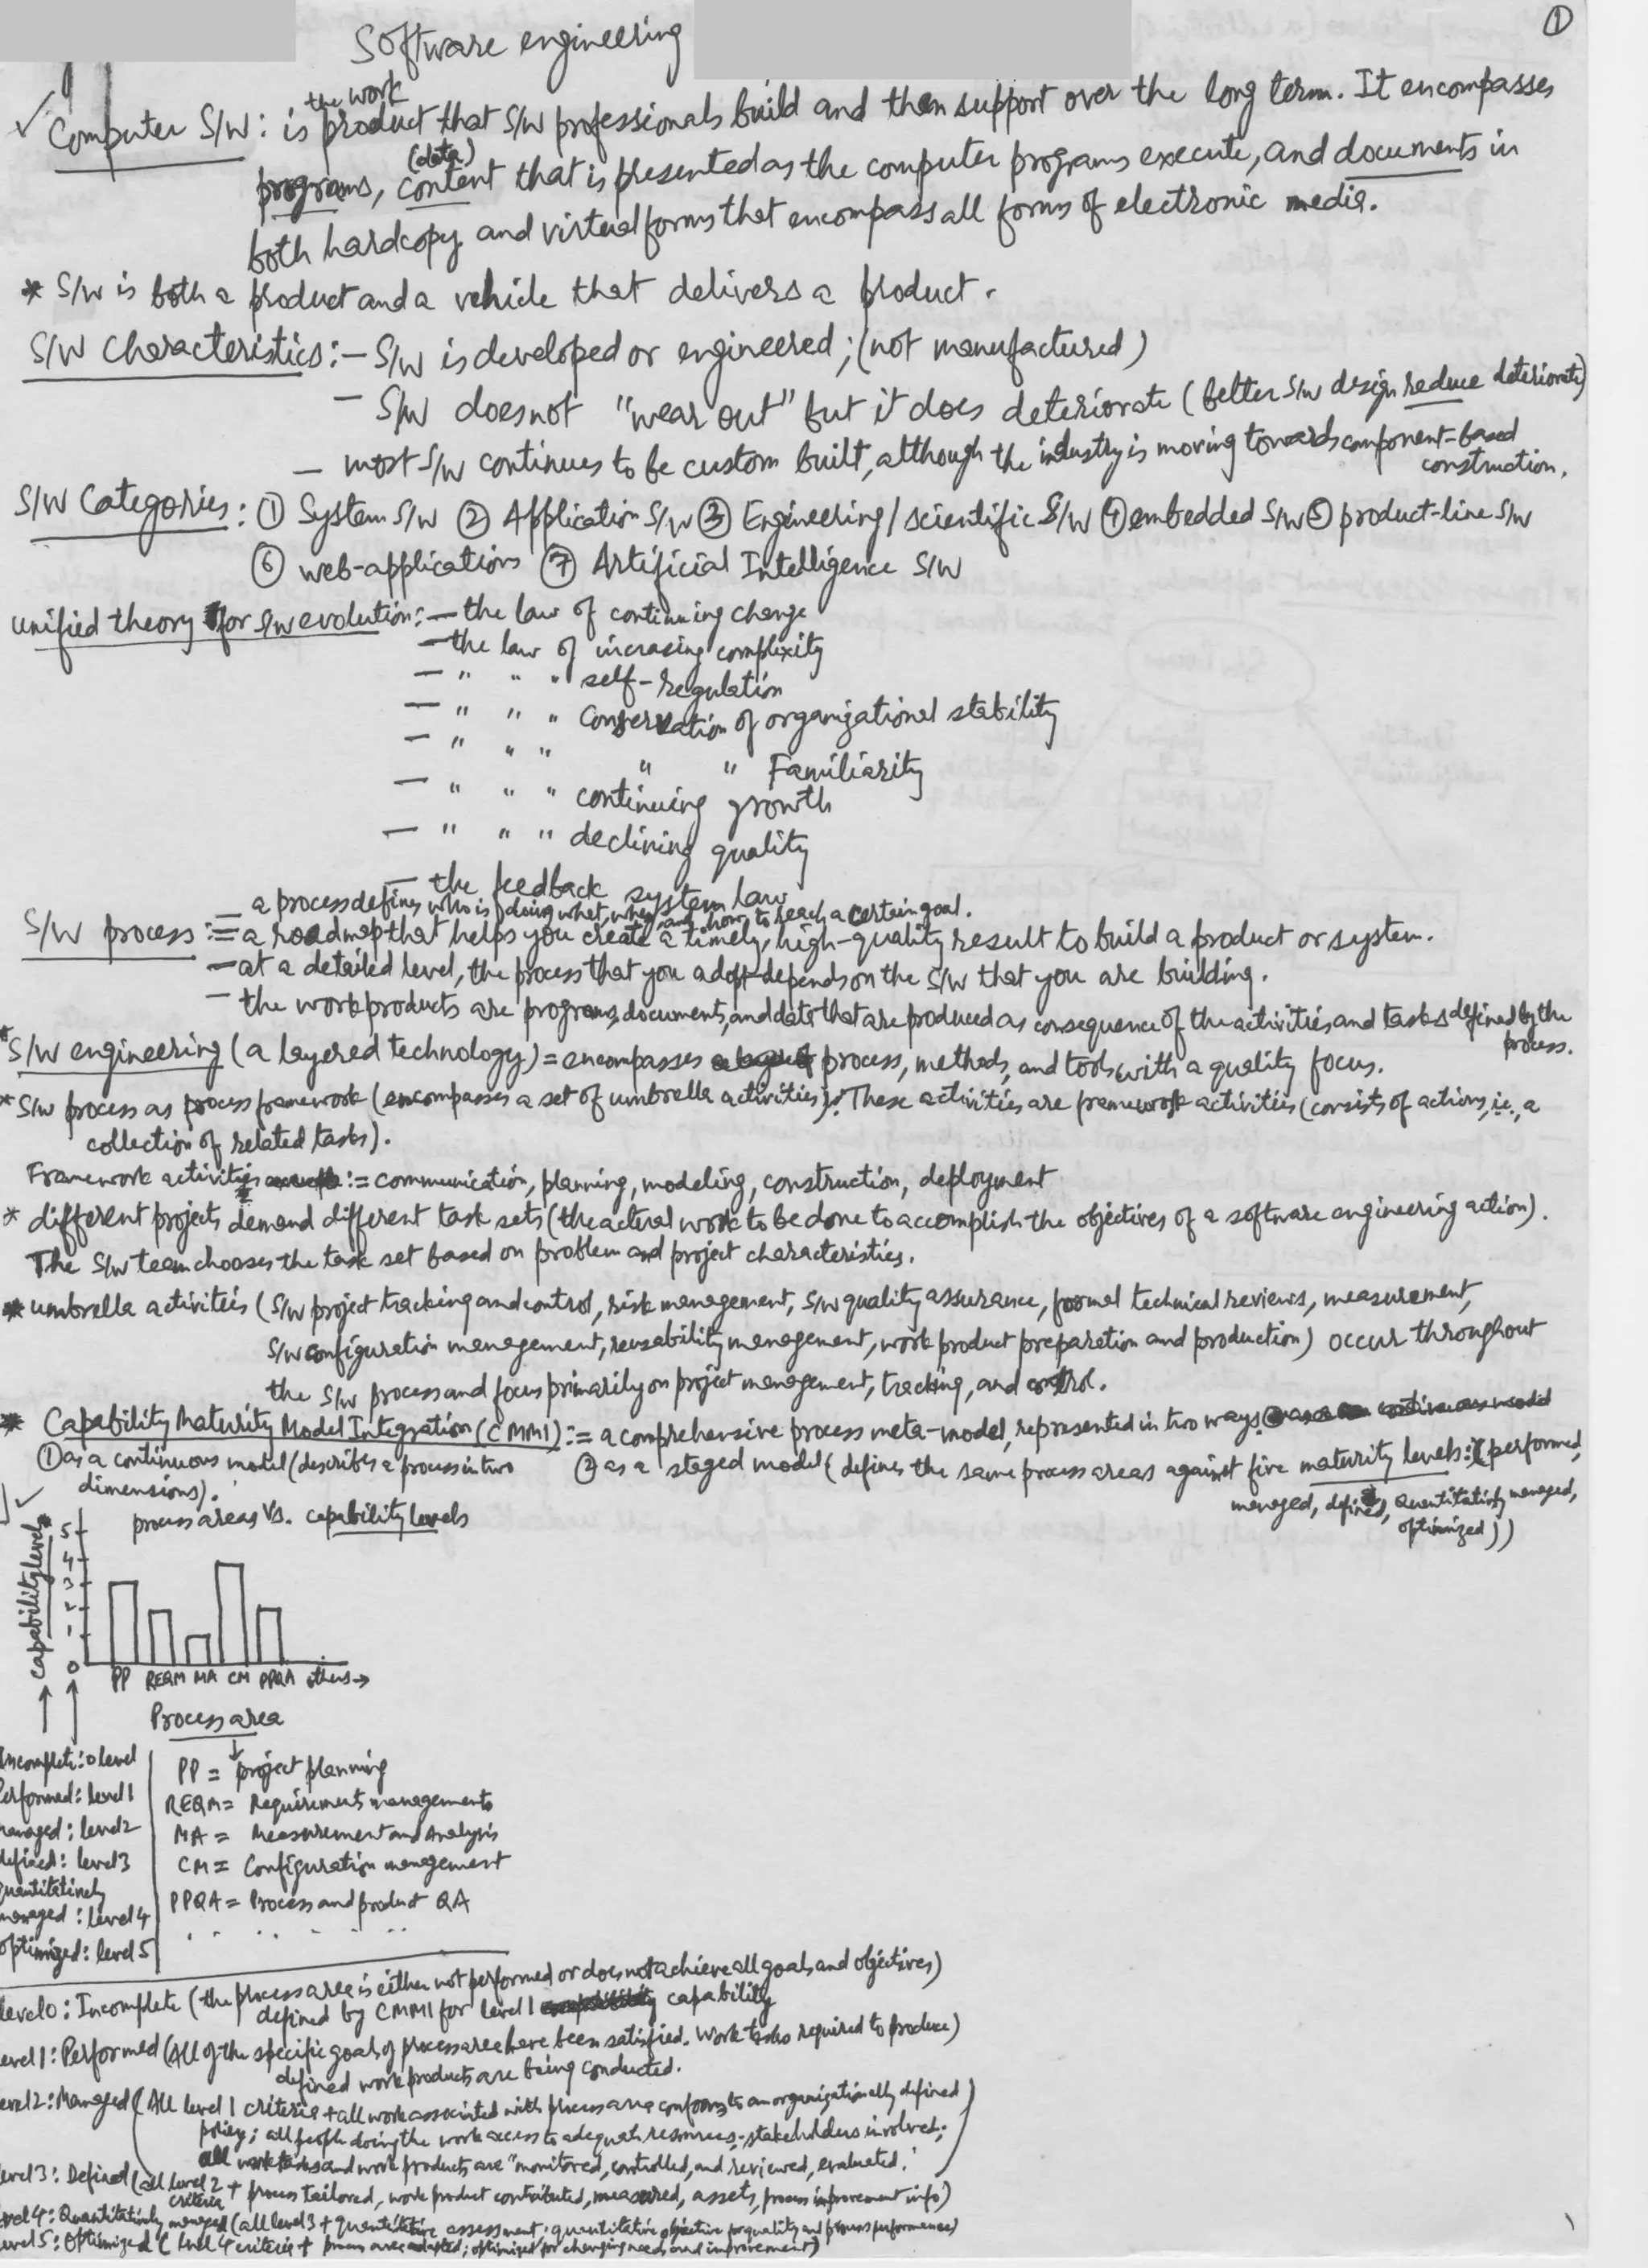 ①
Software engineering
✓ Computer S/W: is the work product that S/W professionals build and then support over the long term. It encompasses
programs, content (data) that is presented as the computer programs execute, and documents in
both hardcopy and virtual forms that encompass all forms of electronic media.
* S/W is both a product and a vehicle that delivers a product.
S/W Characteristics:- S/W is developed or engineered; (not manufactured)
- S/W does not "wear out" but it does deteriorate (better S/W design reduce deteriorate)
- most S/W continues to be custom built, although the industry is moving towards component-based
construction.
S/W Categories: ① System S/W ② Application S/W ③ Engineering/scientific S/W ④ embedded S/W ⑤ product-line S/W
⑥ web-applications ⑦ Artificial Intelligence S/W
unified theory for S/W evolution:- the law of continuing change
- the law of incrasing complexity
- " " " self-regulation
- " " " Conservation of organizational stability
- " " " " " Familiarity
- " " " continuing growth
- " " " declining quality
- the feedback system law
- a process defines who is doing what, when and how to reach a certain goal.
S/W process := a roadmap that helps you create a timely, high-quality result to build a product or system.
- at a detailed level, the process that you adopt depends on the S/W that you are building.
- the work products are programs, documents, and data that are produced as consequence of the activities and tasks defined by the
process.
* S/W engineering (a layered technology) = encompasses process, methods, and tools with a quality focus.
* S/W process as process framework (encompasses a set of umbrella activities): These activities are framework activities (consists of actions, i.e., a
collection of related tasks).
Framework activities := communication, planning, modeling, construction, deployment
* different projects demand different task sets (the acteral work to be done to accomplish the objectives of a software engineering action).
The S/W team chooses the task set based on problem and project characteristics.
* umbrella activities (S/W project tracking and control, risk management, S/W quality assurance, formal technical reviews, measurement,
S/W configuration management, reusability management, work product preparation and production) occur throughout
the S/W process and focus primarily on project management, tracking, and control.
* Capability Maturity Model Integration (CMMI) := a comprehensive process meta-model, represented in two ways:
① as a continuous model (describes a process in two
dimensions).
② as a staged model (defines the same process areas against five maturity levels: (performed,
managed, defined, Quantitatively managed,
optimized))
✓
process areas Vs. capability levels
capability levels
5
4
3
2
1
0
PP REQM MA CM PPQA others →
Process area
Incomplete: 0 level
Performed: level 1
managed: level 2
defined: level 3
quantitatively
managed: level 4
optimized: level 5
PP = project planning
REQM = Requirements managements
MA = Measurement and Analysis
CM = Configuration management
PPQA = Process and product QA
level 0: Incomplete (the process area is either not performed or does not achieve all goals and objectives)
defined by CMMI for level 1 capability
level 1: Performed (All of the specific goals of process area have been satisfied. Work tasks required to produce)
defined work products are being conducted.
level 2: Managed (All level 1 criteria + all work associated with process area conforms to an organizationally defined
policy; all people doing the work access to adequate resources; stakeholders involved;
all work tasks and work products are "monitored, controlled, and reviewed, evaluated.")
level 3: Defined (all level 2 criteria + process tailored, work product contributed, measured, assets, process improvement info)
level 4: Quantitatively managed (all level 3 + quantitative assessment; quantitative objective for quality and process performances)
level 5: Optimized (level 4 criteria + process area adapted; optimized for changing needs and improvement)